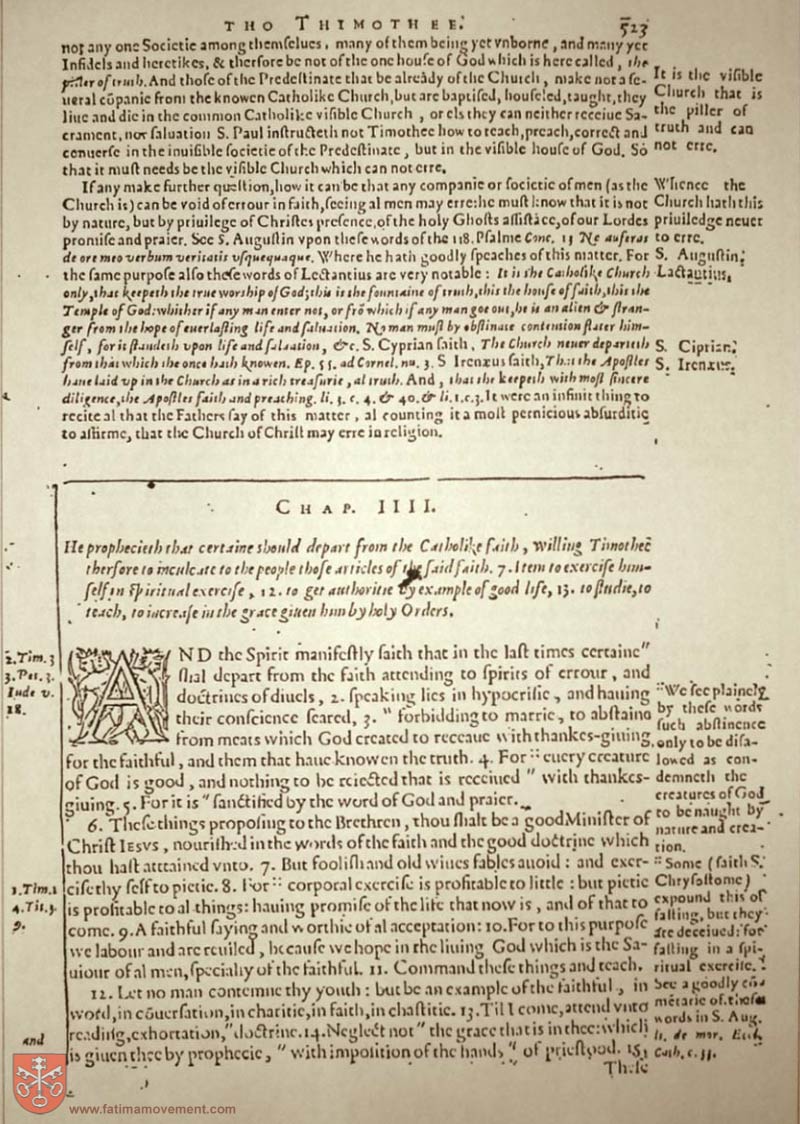 THO THIMOTHEE. 523
not any one Societie among themſelues, many of them being yet vnborne, and many yet
Infidels and heretikes, & therfore be not of the one houſe of God which is here called, the
piller of truth. And thoſe of the Predeſtinate that be already of the Church, make not a ſe-
ueral cōpanie from the knowen Catholike Church, but are baptiſed, houſeled, taught, they
liue and die in the common Catholike viſible Church, or els they can neither receiue Sa-
crament, nor ſaluation S. Paul inſtructeth not Timothee how to teach, preach, correct and
conuerſe in the inuiſible ſocietie of the Predeſtinate, but in the viſible houſe of God. So
that it muſt needs be the viſible Church which can not erre.
It is the viſible
Church that is
the piller of
truth and can
not erre.
If any make further queſtion, how it can be that any companie or ſocietie of men (as the
Church is) can be void of errour in faith, ſeeing al men may erre: he muſt know that it is not
by nature, but by priuilege of Chriſtes preſence, of the holy Ghoſts aſſiſtāce, of our Lordes
promiſe and praier. See S. Auguſtin vpon theſe words of the 118. Pſalme Conc. 13 Ne auferas
de ore meo verbum veritatis vſquequaque. Where he hath goodly ſpeaches of this matter. For
the ſame purpoſe alſo theſe words of Lectantius are very notable: It is the Catholike Church
only, that keepeth the true worship of God; this is the fountaine of truth, this the houſe of faith, this the
Temple of God: whither if any man enter not, or frō which if any man goe out, he is an alien & ſtran-
ger from the hope of euerlaſting life and ſaluation. No man muſt by obſtinate contention flater him-
ſelf, for it ſtandeth vpon life and ſaluation, &c. S. Cyprian ſaith, The Church neuer departeth
from that which she once hath knowen. Ep. 55. ad Cornel. nu. 3. S Irenæus ſaith, That the Apoſtles
haue laid vp in the Church as in a rich treaſurie, al truth. And, that she keepeth with moſt ſincere
diligence, the Apoſtles faith and preaching. li. 3. c. 4. & 40. & li. 1. c. 3. It were an infinit thing to
recite al that the Fathers ſay of this matter, al counting it a moſt pernicious abſurditie
to affirme, that the Church of Chriſt may erre in religion.
Whence the
Church hath this
priuiledge neuer
to erre.
S. Auguſtin.
Lactantius.
S. Ciprian.
S. Irenæus.
CHAP. IIII.
He prophecieth that certaine should depart from the Catholike faith, willing Timothee
therfore to inculcate to the people thoſe articles of the ſaid faith. 7. Item to exerciſe him-
ſelf in ſpiritual exerciſe, 12. to get authoritie by example of good life, 13. to ſtudie, to
teach, to increaſe in the grace giuen him by holy Orders.
2. Tim. 3
3. Pet. 3.
Iude v.
18.
AND the Spirit manifeſtly ſaith that in the laſt times certaine"
shal depart from the faith attending to ſpirits of errour, and
doctrines of diuels, 2. ſpeaking lies in hypocriſie, and hauing
their conſcience ſeared, 3. " forbidding to marrie, to abſtaine
from meats which God created to receaue with thankes-giuing
for the faithful, and them that haue knowen the truth. 4. For :: euery creature
of God is good, and nothing to be reiected that is receiued " with thankes-
giuing. 5. For it is " ſanctified by the word of God and praier.
6. Theſe things propoſing to the Brethren, thou shalt be a good Miniſter of
Chriſt IESVS, nourished in the words of the faith and the good doctrine which
thou haſt atteained vnto. 7. But foolish and old wiues fables auoid: and exer-
ciſe thy ſelf to pietie. 8. For :: corporal exerciſe is profitable to little: but pietie
is profitable to al things: hauing promiſe of the life that now is, and of that to
come. 9. A faithful ſaying and worthie of al acceptation: 10. For to this purpoſe
we labour and are reuiled, becauſe we hope in the liuing God which is the Sa-
uiour of al men, ſpecially of the faithful. 11. Command theſe things and teach.
12. Let no man contemne thy youth: but be an example of the faithful, in
word, in cōuerſation, in charitie, in faith, in chaſtitie. 13. Til I come, attend vnto
reading, exhortation, " doctrine. 14. Neglect not " the grace that is in thee: which
is giuen thee by prophecie, " with impoſition of the hands " of prieſthod. 15.
Theſe
1. Tim. 1
4. Tit. 3.
9.
and
:: We ſee plainely
by theſe words
ſuch abſtinence
only to be diſa-
lowed as con-
demneth the
creatures of God
to be naught by
nature and crea-
tion.
:: Some (ſaith S.
Chryſoſtome)
expound this of
faſting, but they
are deceiued: for
faſting in a ſpi-
ritual exerciſe.
See a goodly cō-
mētarie of theſe
words in S. Aug.
li. de mor. Eccl.
Cath. c. 33.
www.fatimamovement.com